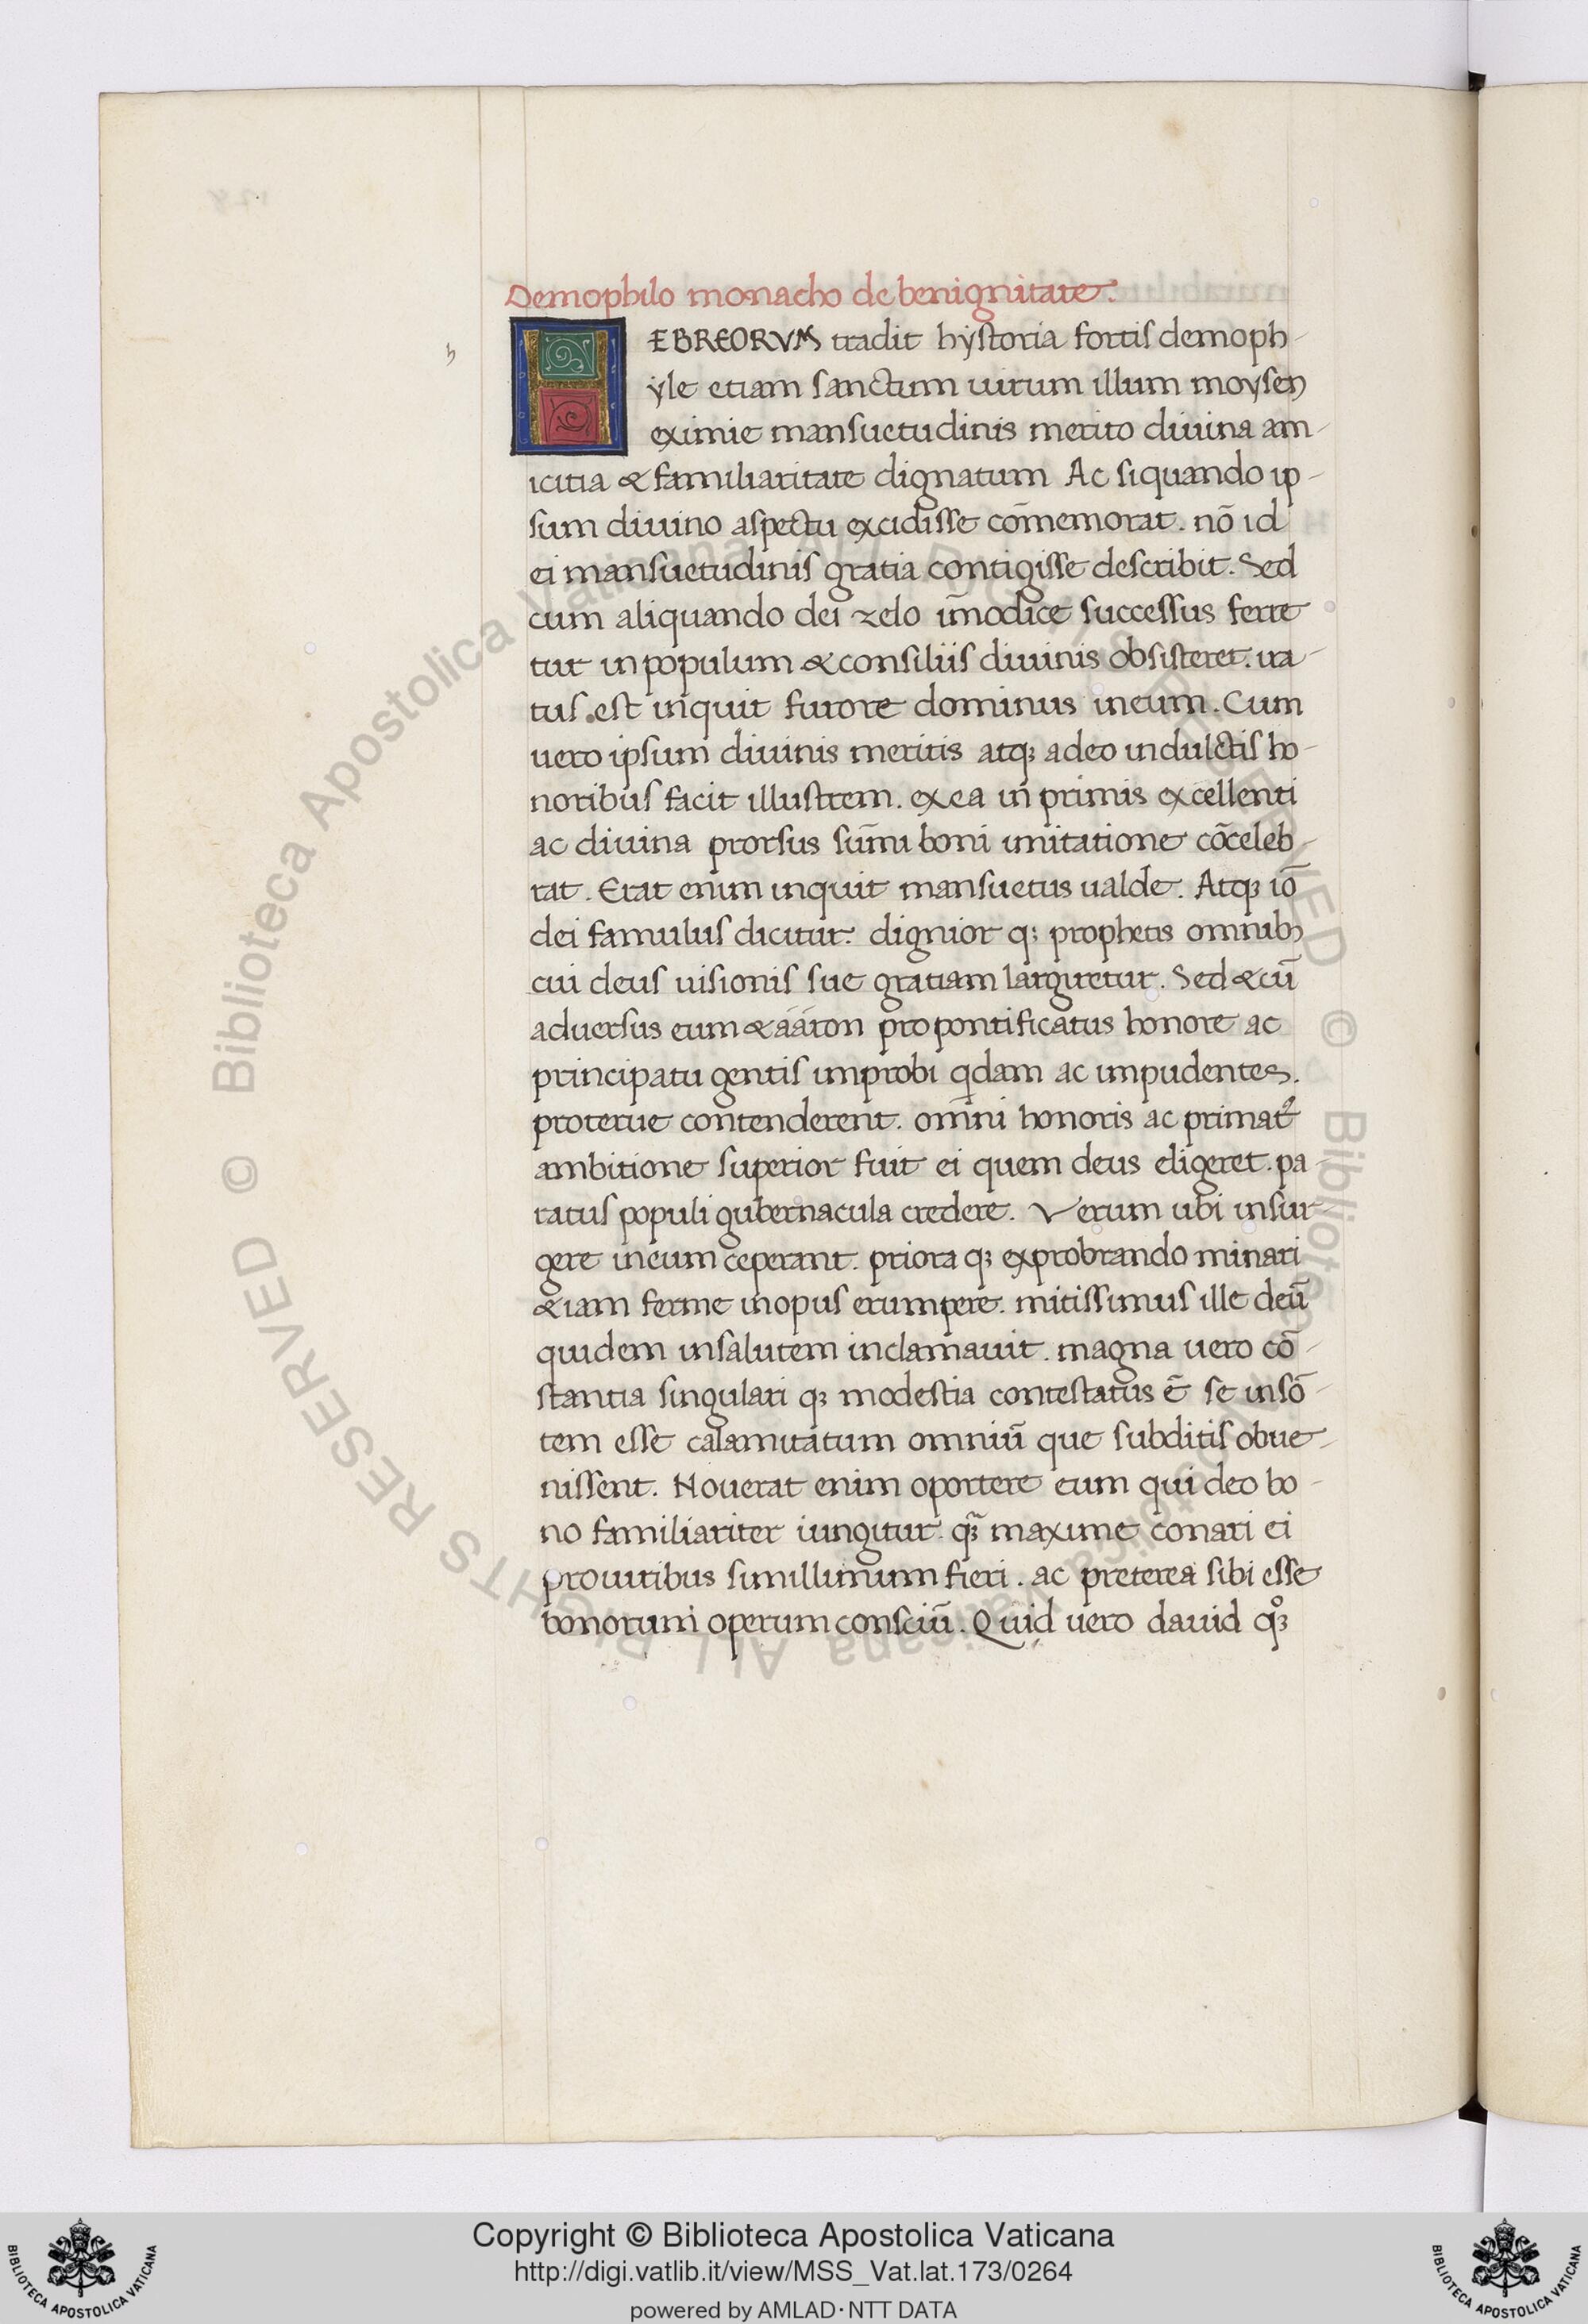 Demophilo monacho de benignitate.
HEBREORVM tradit hystoria fortis demoph-
yle etiam sanctum uirum illum moysen
eximie mansuetudinis merito diuina am-
icitia & familiaritate dignatum Ac siquando ip-
sum diuino aspectu excidisse cōmemorat. nō id
ei mansuetudinis gratia contigisse describit. Sed
cum aliquando dei zelo īmodice successus ferre
tur in populum & consiliis diuinis obsisteret. ira-
tus est inquit furore dominus in eum. Cum
uero ipsum diuinis meritis atq; adeo indulctis ho-
noribus facit illustrem. ex ea in primis excellenti
ac diuina prorsus sūmi boni imitatione cōceleb-
rat. Erat enim inquit mansuetus ualde. Atq; iō
dei famulus dicitur. dignior q; prophetis omnibꝫ
cui deus uisionis sue gratiam largiretur. Sed & cū
aduersus eum & aáron pro pontificatus honore ac
principatu gentis improbi qdam ac impudentes.
proterue contenderent. omni honoris ac primatꝰ
ambitione superior fuit ei quem deus eligeret. pa-
ratus populi gubernacula credere. Verum ubi insur-
gere in eum ceperant. priora q; exprobrando minari
& iam ferme in opus erumpere. mitissimus ille deū
quidem in salutem inclamauit. magna uero cō-
stantia singulari q; modestia contestatus ē se insō-
tem esse calamitatum omniū que subditis obue-
nissent. Nouerat enim oportere eum qui deo bo-
no familiariter iungitur. q̄ꝫ maxime conari ei
pro uiribus simillimum fieri. ac preterea sibi esse
bonorum operum consciū. Quid uero dauid qͦꝫ
h
Copyright © Biblioteca Apostolica Vaticana
http://digi.vatlib.it/view/MSS_Vat.lat.173/0264
powered by AMLAD·NTT DATA
BIBLIOTECA APOSTOLICA VATICANA
BIBLIOTECA APOSTOLICA VATICANA